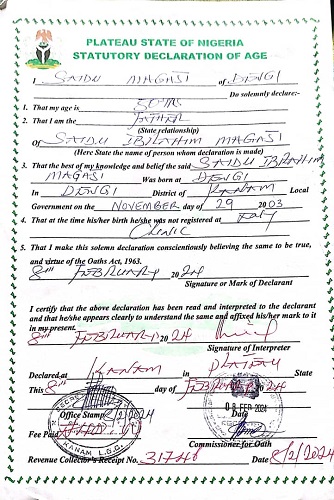 PLATEAU STATE OF NIGERIA
STATUTORY DECLARATION OF AGE
I SAIDU MAGASI of DENGI
Do solemnly declare:-
1. That my age is 50YRS
2. That I am the FATHER
(State relationship)
Of SAIDU IBRAHIM MAGASI
(Here State the name of person whom declaration is made)
3. That the best of my knowledge and believe the said SAIDU IBRAHIM
MAGASI Was born at DENGI
In DENGI District of KANAM Local
Government on the NOVEMBER day of 29 2003
4. That at the time his/her birth he/she was not registered at any
Clinic
5. That I make this solemn declaration conscientiously believing the same to be true,
and virtue of the Oaths Act, 1963.
8th FEBRUARY 2024
Signature or Mark of Declarant
I certify that the above declaration has been read and interpreted to the declarant
and that he/she appears clearly to understand the same and affixed his/her mark to it
in my present.
8th FEBRUARY 2024
Signature of Interpreter
Declared at KANAM in PLATEAU State
This 8th day of FEBRUARY 2024
Office Stamp 8/2/2024 Date
08 FEB 2024
Fee Paid
KANAM L.G.C.
Commissioner for Oath
Revenue Collector's Receipt No. 31740 Date 8/2/2024